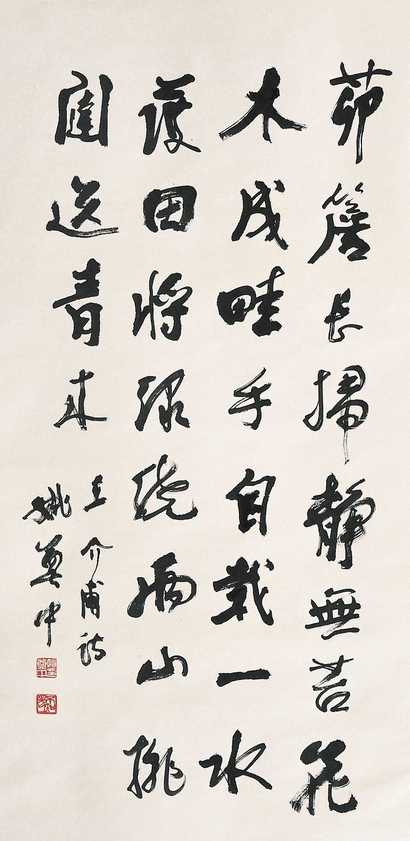 茆簷長掃靜無苔花
木成畦手自栽一水
護田將綠繞兩山排
闥送青來
王介甫詩
姚奠中